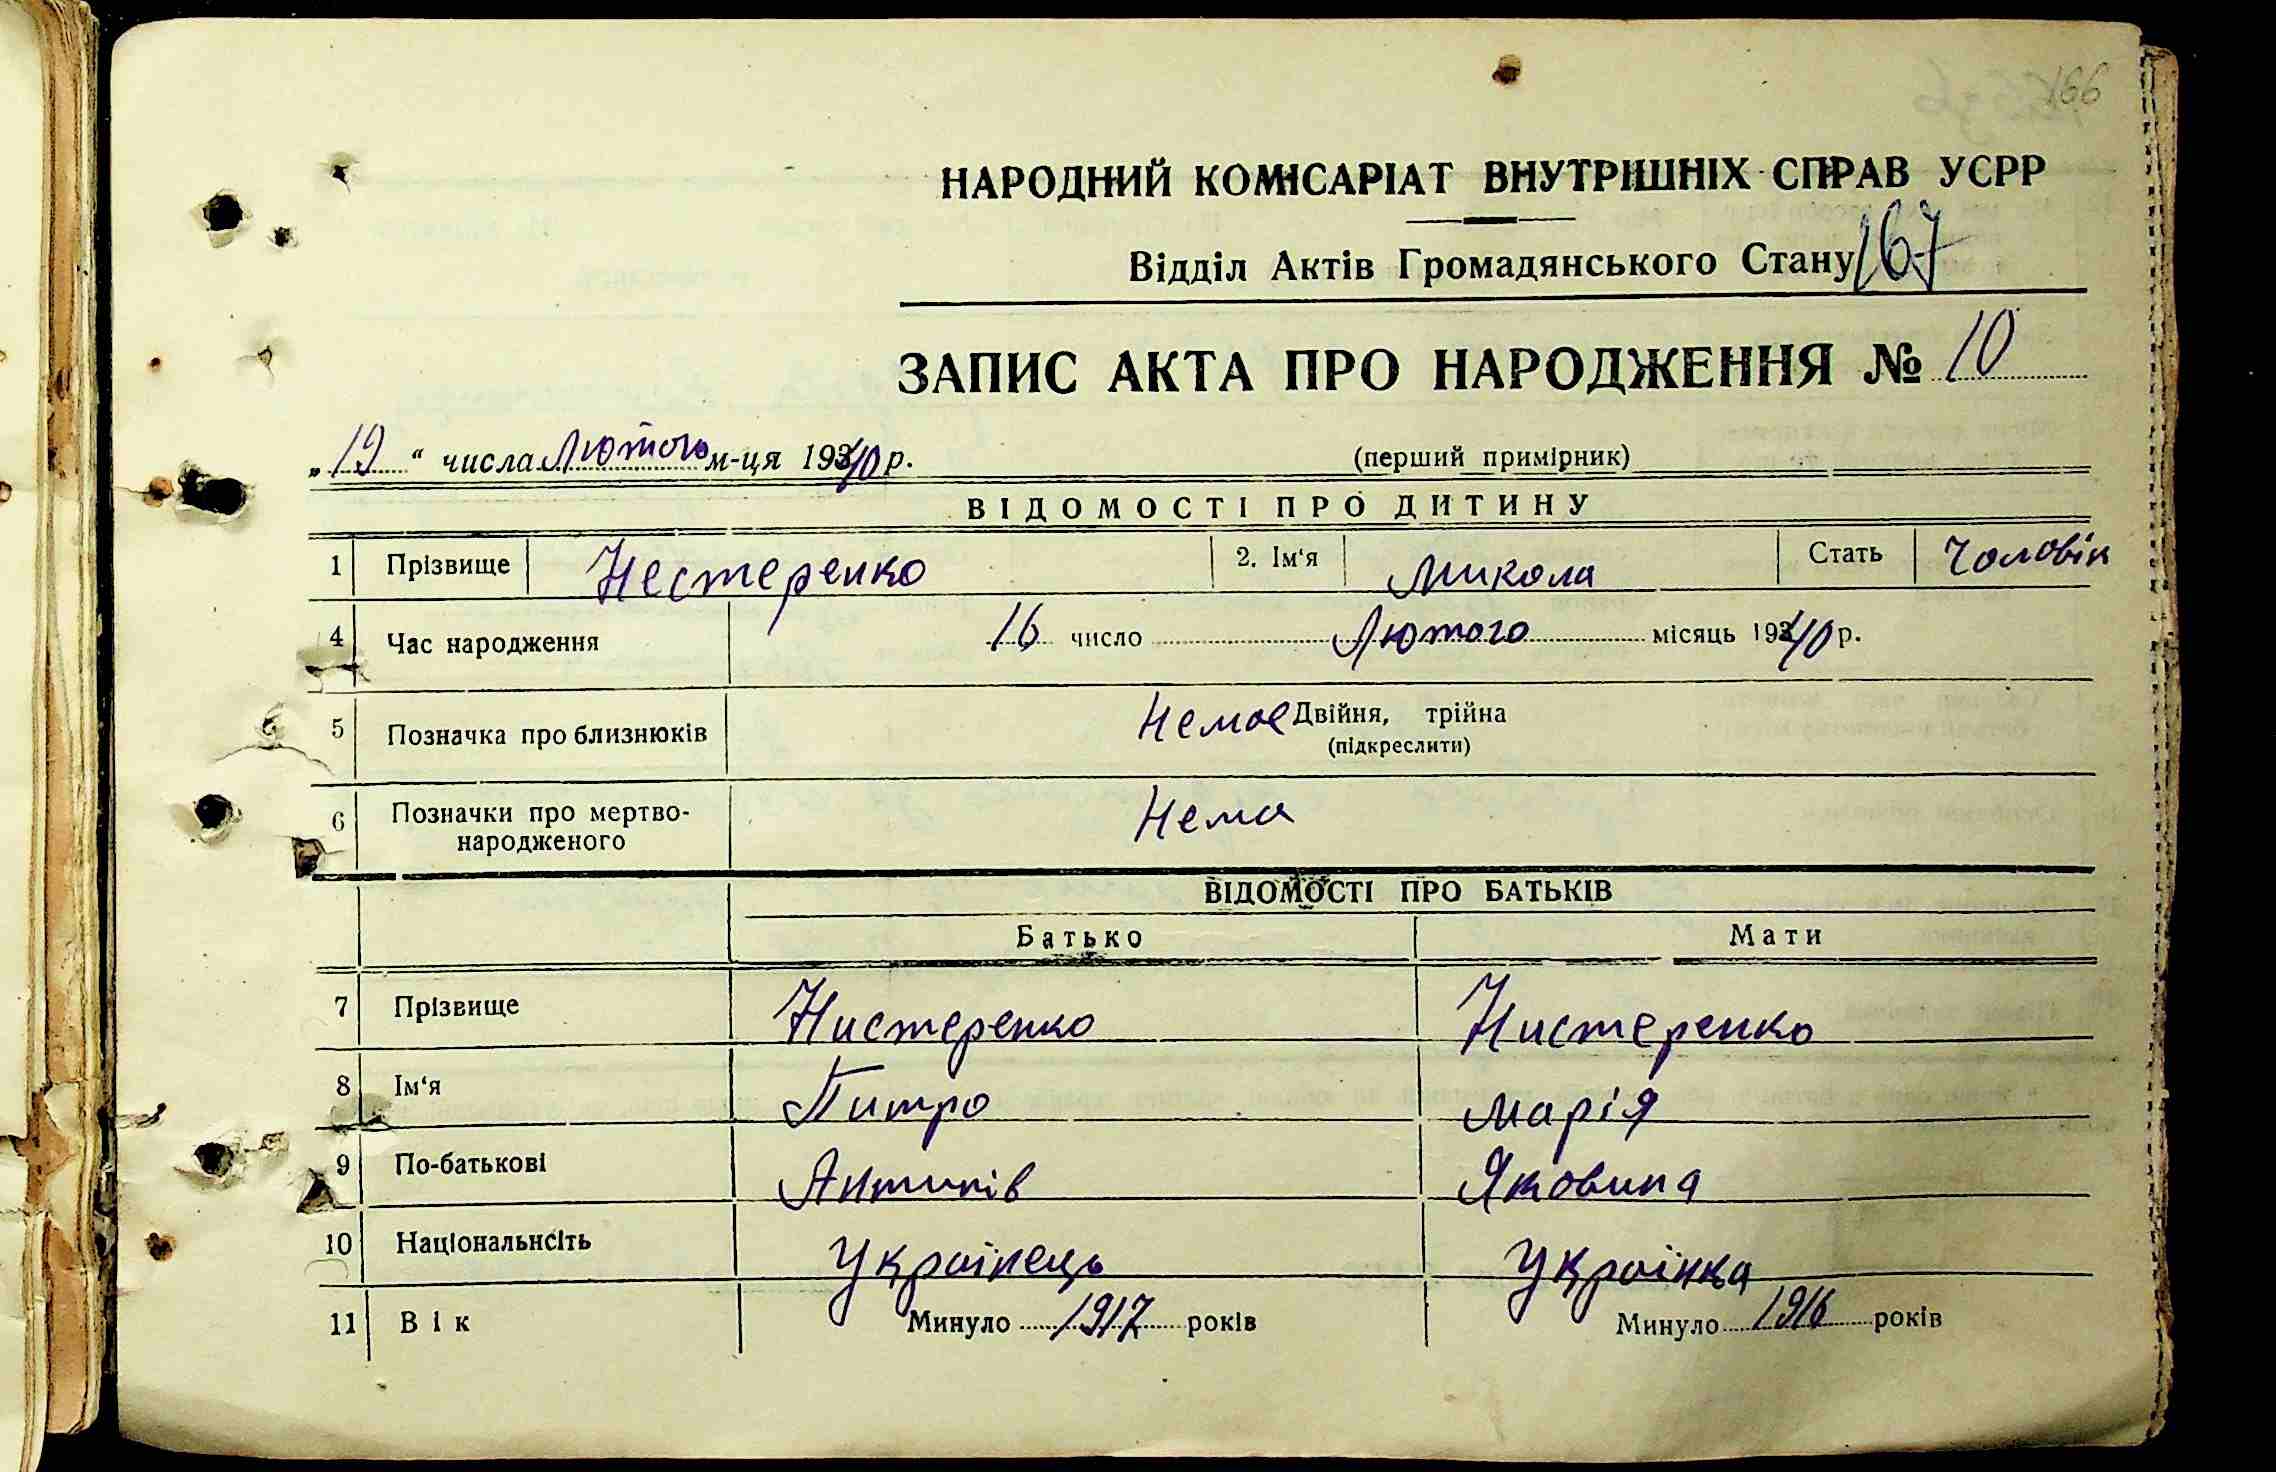 166
НАРОДНИЙ КОМІСАРІАТ ВНУТРІШНІХ СПРАВ УСРР
Відділ Актів Громадянського Стану 167
ЗАПИС АКТА ПРО НАРОДЖЕННЯ № 10
„19“ числа Лютого м-ця 1940 р. (перший примірник)
ВІДОМОСТІ ПРО ДИТИНУ
1 Прізвище Нестеренко 2. Ім‘я Микола Стать Чоловік
4 Час народження 16 число Лютого місяць 1940 р.
5 Позначка про близнюків Немає Двійня, трійна
(підкреслити)
6 Позначки про мертво-
народженого Нема
ВІДОМОСТІ ПРО БАТЬКІВ
Батько Мати
7 Прізвище Нистеренко Нистеренко
8 Ім‘я Питро Марія
9 По-батькові Антипів Яковина
10 Національнсіть Українець Українка
11 Вік Минуло 1917 років Минуло 1916 років